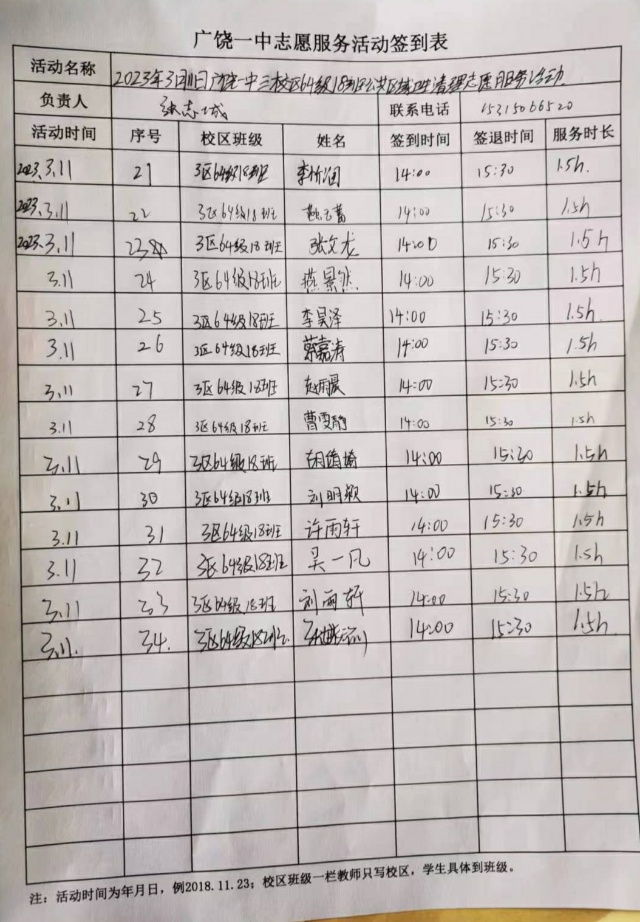 广饶一中志愿服务活动签到表
活动名称 2023年3月11日广饶一中三校区64级18班公共区域卫生清理志愿服务活动
负责人 张志城 联系电话 15315066520
活动时间 序号 校区班级 姓名 签到时间 签退时间 服务时长
2023.3.11 21 3区64级18班 李忻润 14:00 15:30 1.5h
2023.3.11 22 3区64级18班 14:00 15:30 1.5h
2023.3.11 23 3区64级18班 张文龙 14:00 15:30 1.5h
3.11 24 3区64级18班 燕景然 14:00 15:30 1.5h
3.11 25 3区64级18班 李昊泽 14:00 15:30 1.5h
3.11 26 3区64级18班 蔡嘉涛 14:00 15:30 1.5h
3.11 27 3区64级18班 14:00 15:30 1.5h
3.11 28 3区64级18班 曹雯静 14:00 15:30 1.5h
3.11 29 3区64级18班 14:00 15:30 1.5h
3.11 30 3区64级18班 刘明颖 14:00 15:30 1.5h
3.11 31 3区64级18班 许雨轩 14:00 15:30 1.5h
3.11 32 3区64级18班 吴一凡 14:00 15:30 1.5h
3.11 33 3区64级18班 刘雨轩 14:00 15:30 1.5h
3.11. 34. 3区64级18班 14:00 15:30 1.5h
注：活动时间为年月日，例2018.11.23；校区班级一栏教师只写校区，学生具体到班级。